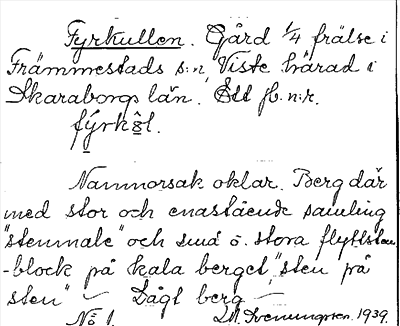 Fyrkullen. Gård 1/4 frälse i
Främmestads s:n, Viste härad i
Skaraborgs län. Ett jb. n:r.
fy̱rkō̱l.
Namnorsak oklar. Berg där
med stor och enastående samling
"stenmale" och små o. stora flyttsten
-block på kala berget, "sten på
sten" – Lågt berg –
No 1. 1939.